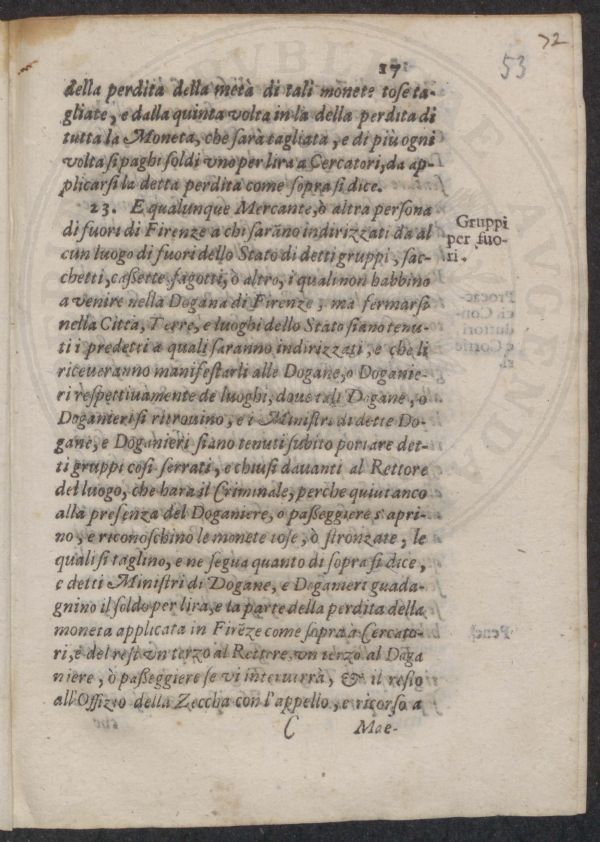 72
17
53
della perdita della metà di tali monete tose ta-
gliate, e dalla quinta volta in là della perdita di
tutta la Moneta, che sarà tagliata, e di più ogni
volta si paghi soldi vno per lira a Cercatori, da ap-
plicarsi la detta perdita come sopra si dice.
23. E qualunque Mercante, ò altra persona
di fuori di Firenze a chi sarãno indirizzati da al
cun luogo di fuori dello Stato di detti gruppi, sac-
chetti, cassette, fagotti, ò altro, i quali non habbino
a venire nella Dogana di Firenze, ma fermarsi
nella Città, Terre, e luoghi dello Stato siano tenu-
ti i predetti a quali saranno indirizzati, e che li
riceueranno manifestarli alle Dogane, o Doganie-
ri respettiuamente de luoghi, doue tali Dogane, o
Doganieri si ritrouino, e i Ministri di dette Do-
gane, e Doganieri siano tenuti subito portare det-
ti gruppi così serrati, e chiusi dauanti al Rettore
del luogo, che harà il Criminale, perche quiui anco
alla presenza del Doganiere, o passeggiere s'apri-
no, e riconoschino le monete tose, ò stronzate, le
quali si taglino, e ne segua quanto di sopra si dice,
e detti Ministri di Dogane, e Doganieri guada-
gnino il soldo per lira, e la parte della perdita della
moneta applicata in Firẽze come sopra a Cercato-
ri, e del resto vn terzo al Rettore, vn terzo al Doga
niere, ò passeggiere se vi interuerrà, & il resto
all'Offizio della Zeccha con l'appello, e ricorso a
Gruppi
per fuo-
ri.
C
Mae-